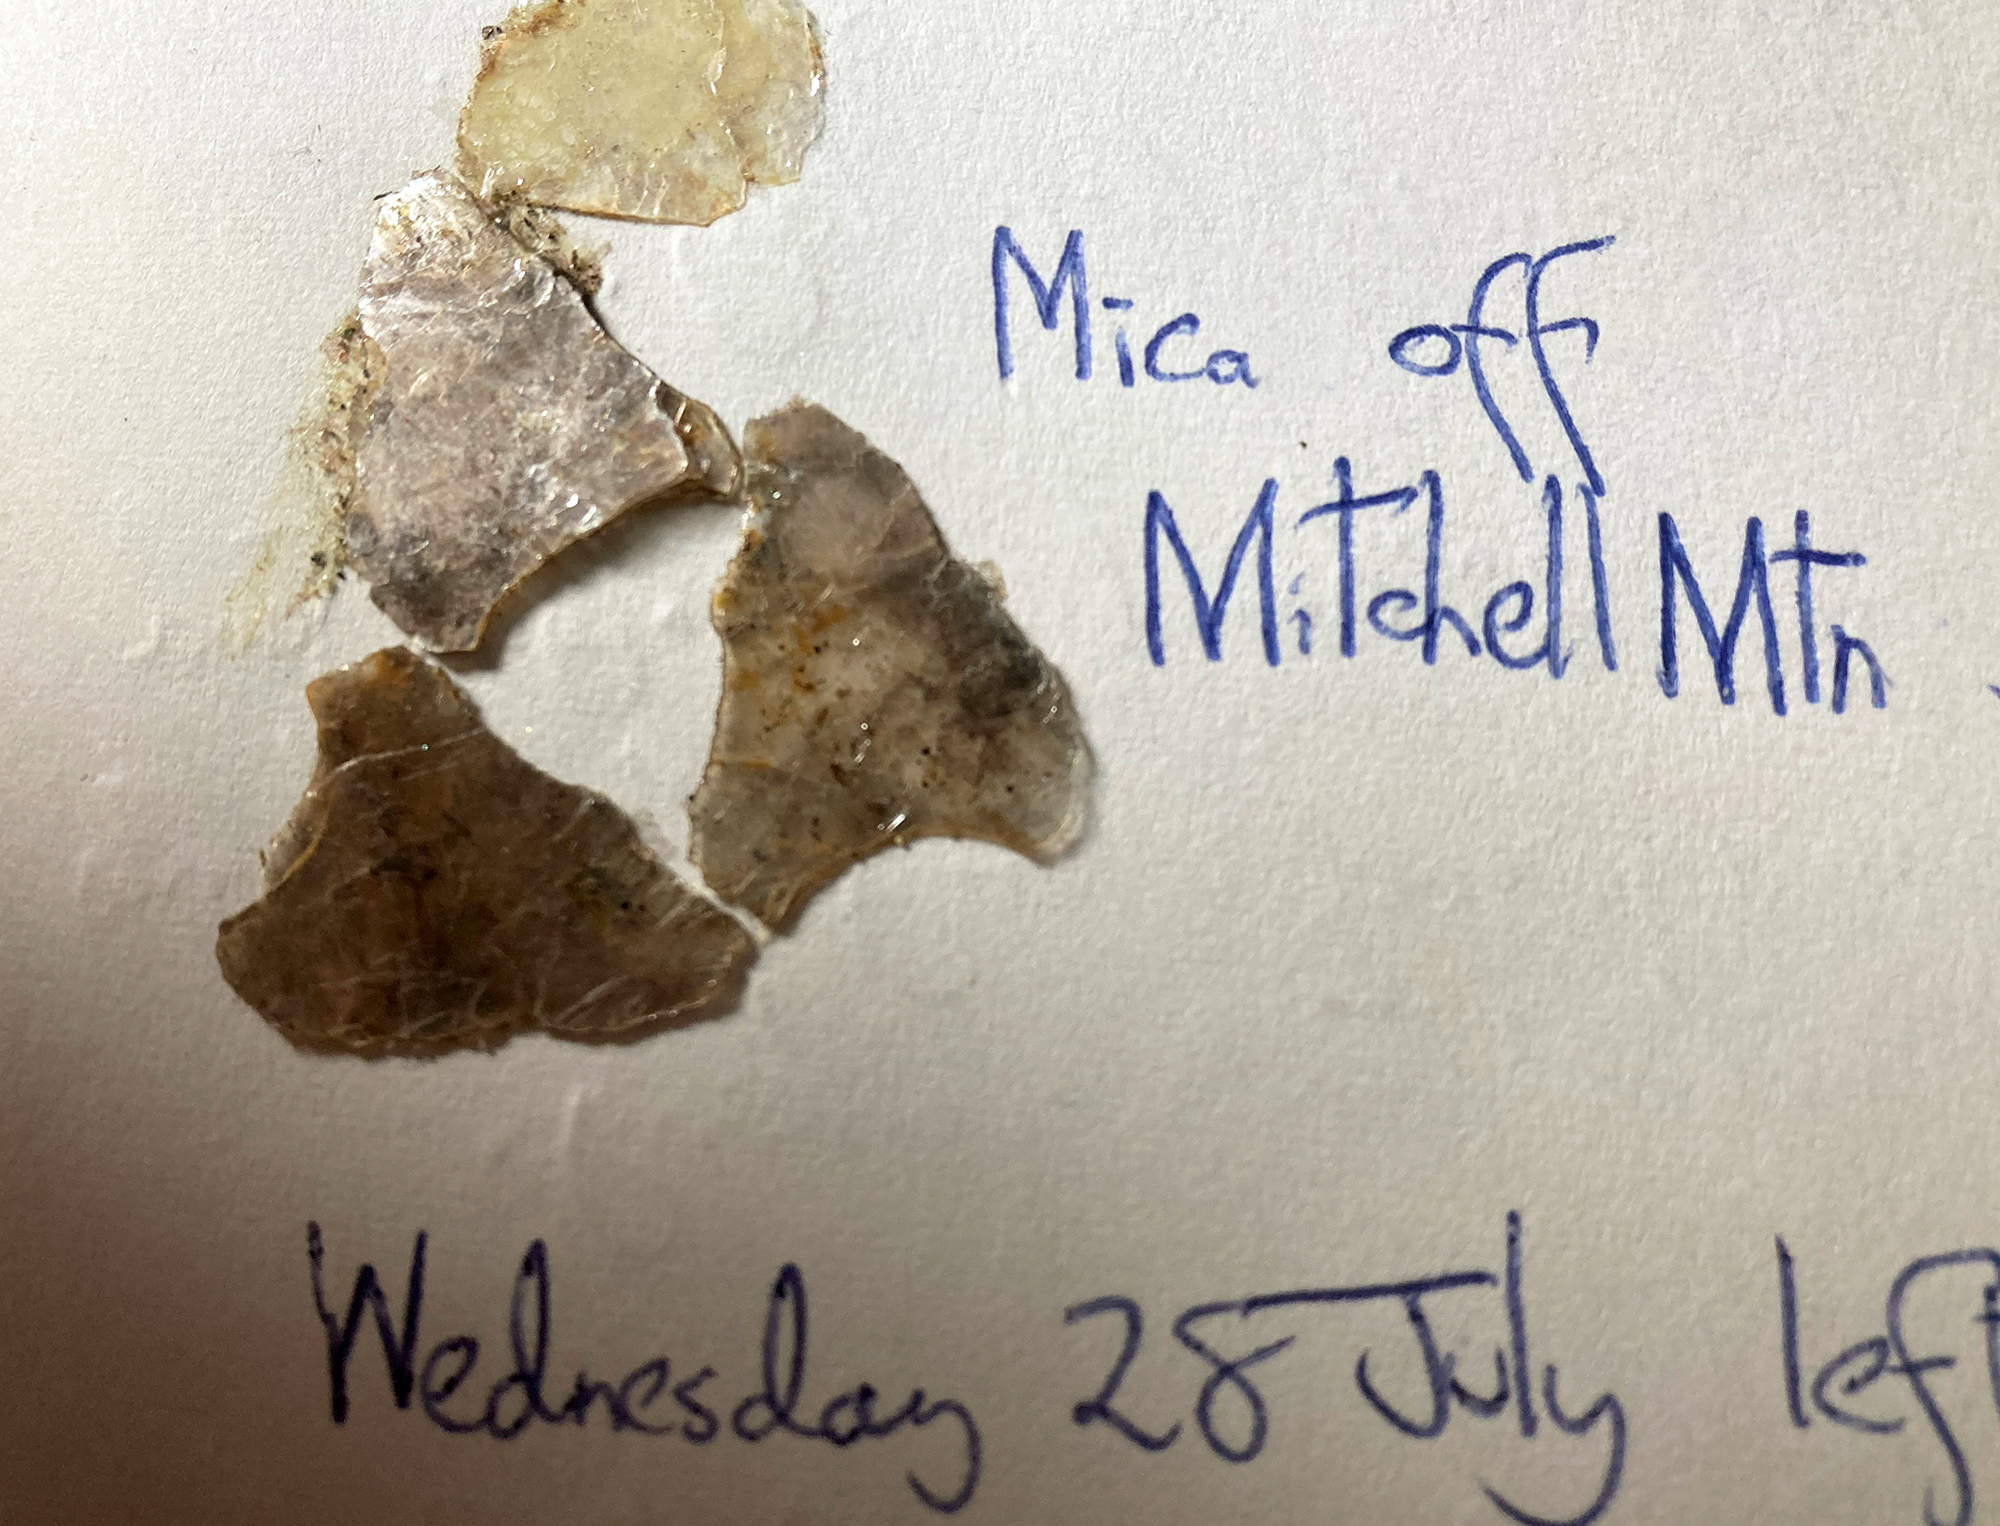 Mica off
Mitchell Mtn.
Wednesday 28 July left